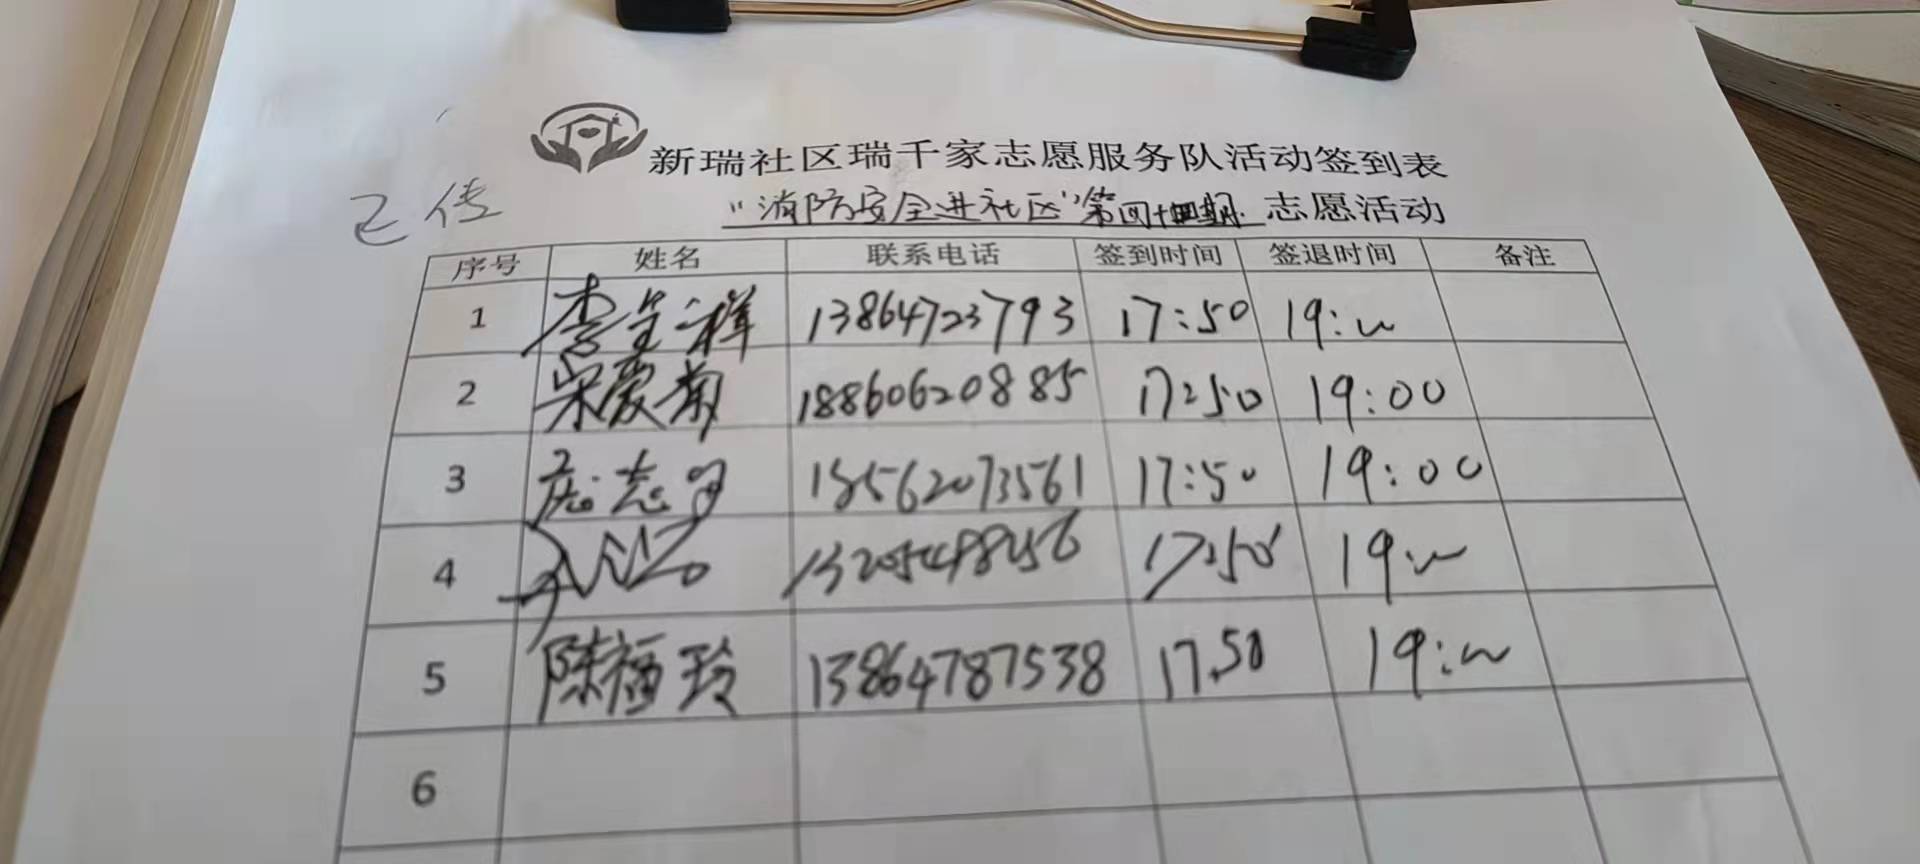 新瑞社区瑞千家志愿服务队活动签到表
已传
"消防安全进社区"第四十四期 志愿活动
序号 姓名 联系电话 签到时间 签退时间 备注
1 李全祥 13864723793 17:50 19:00
2 宋爱菊 18860620885 17:50 19:00
3 志 15562073561 17:50 19:00
4 17:50 19:00
5 陈福玲 13864787538 17.50 19:00
6